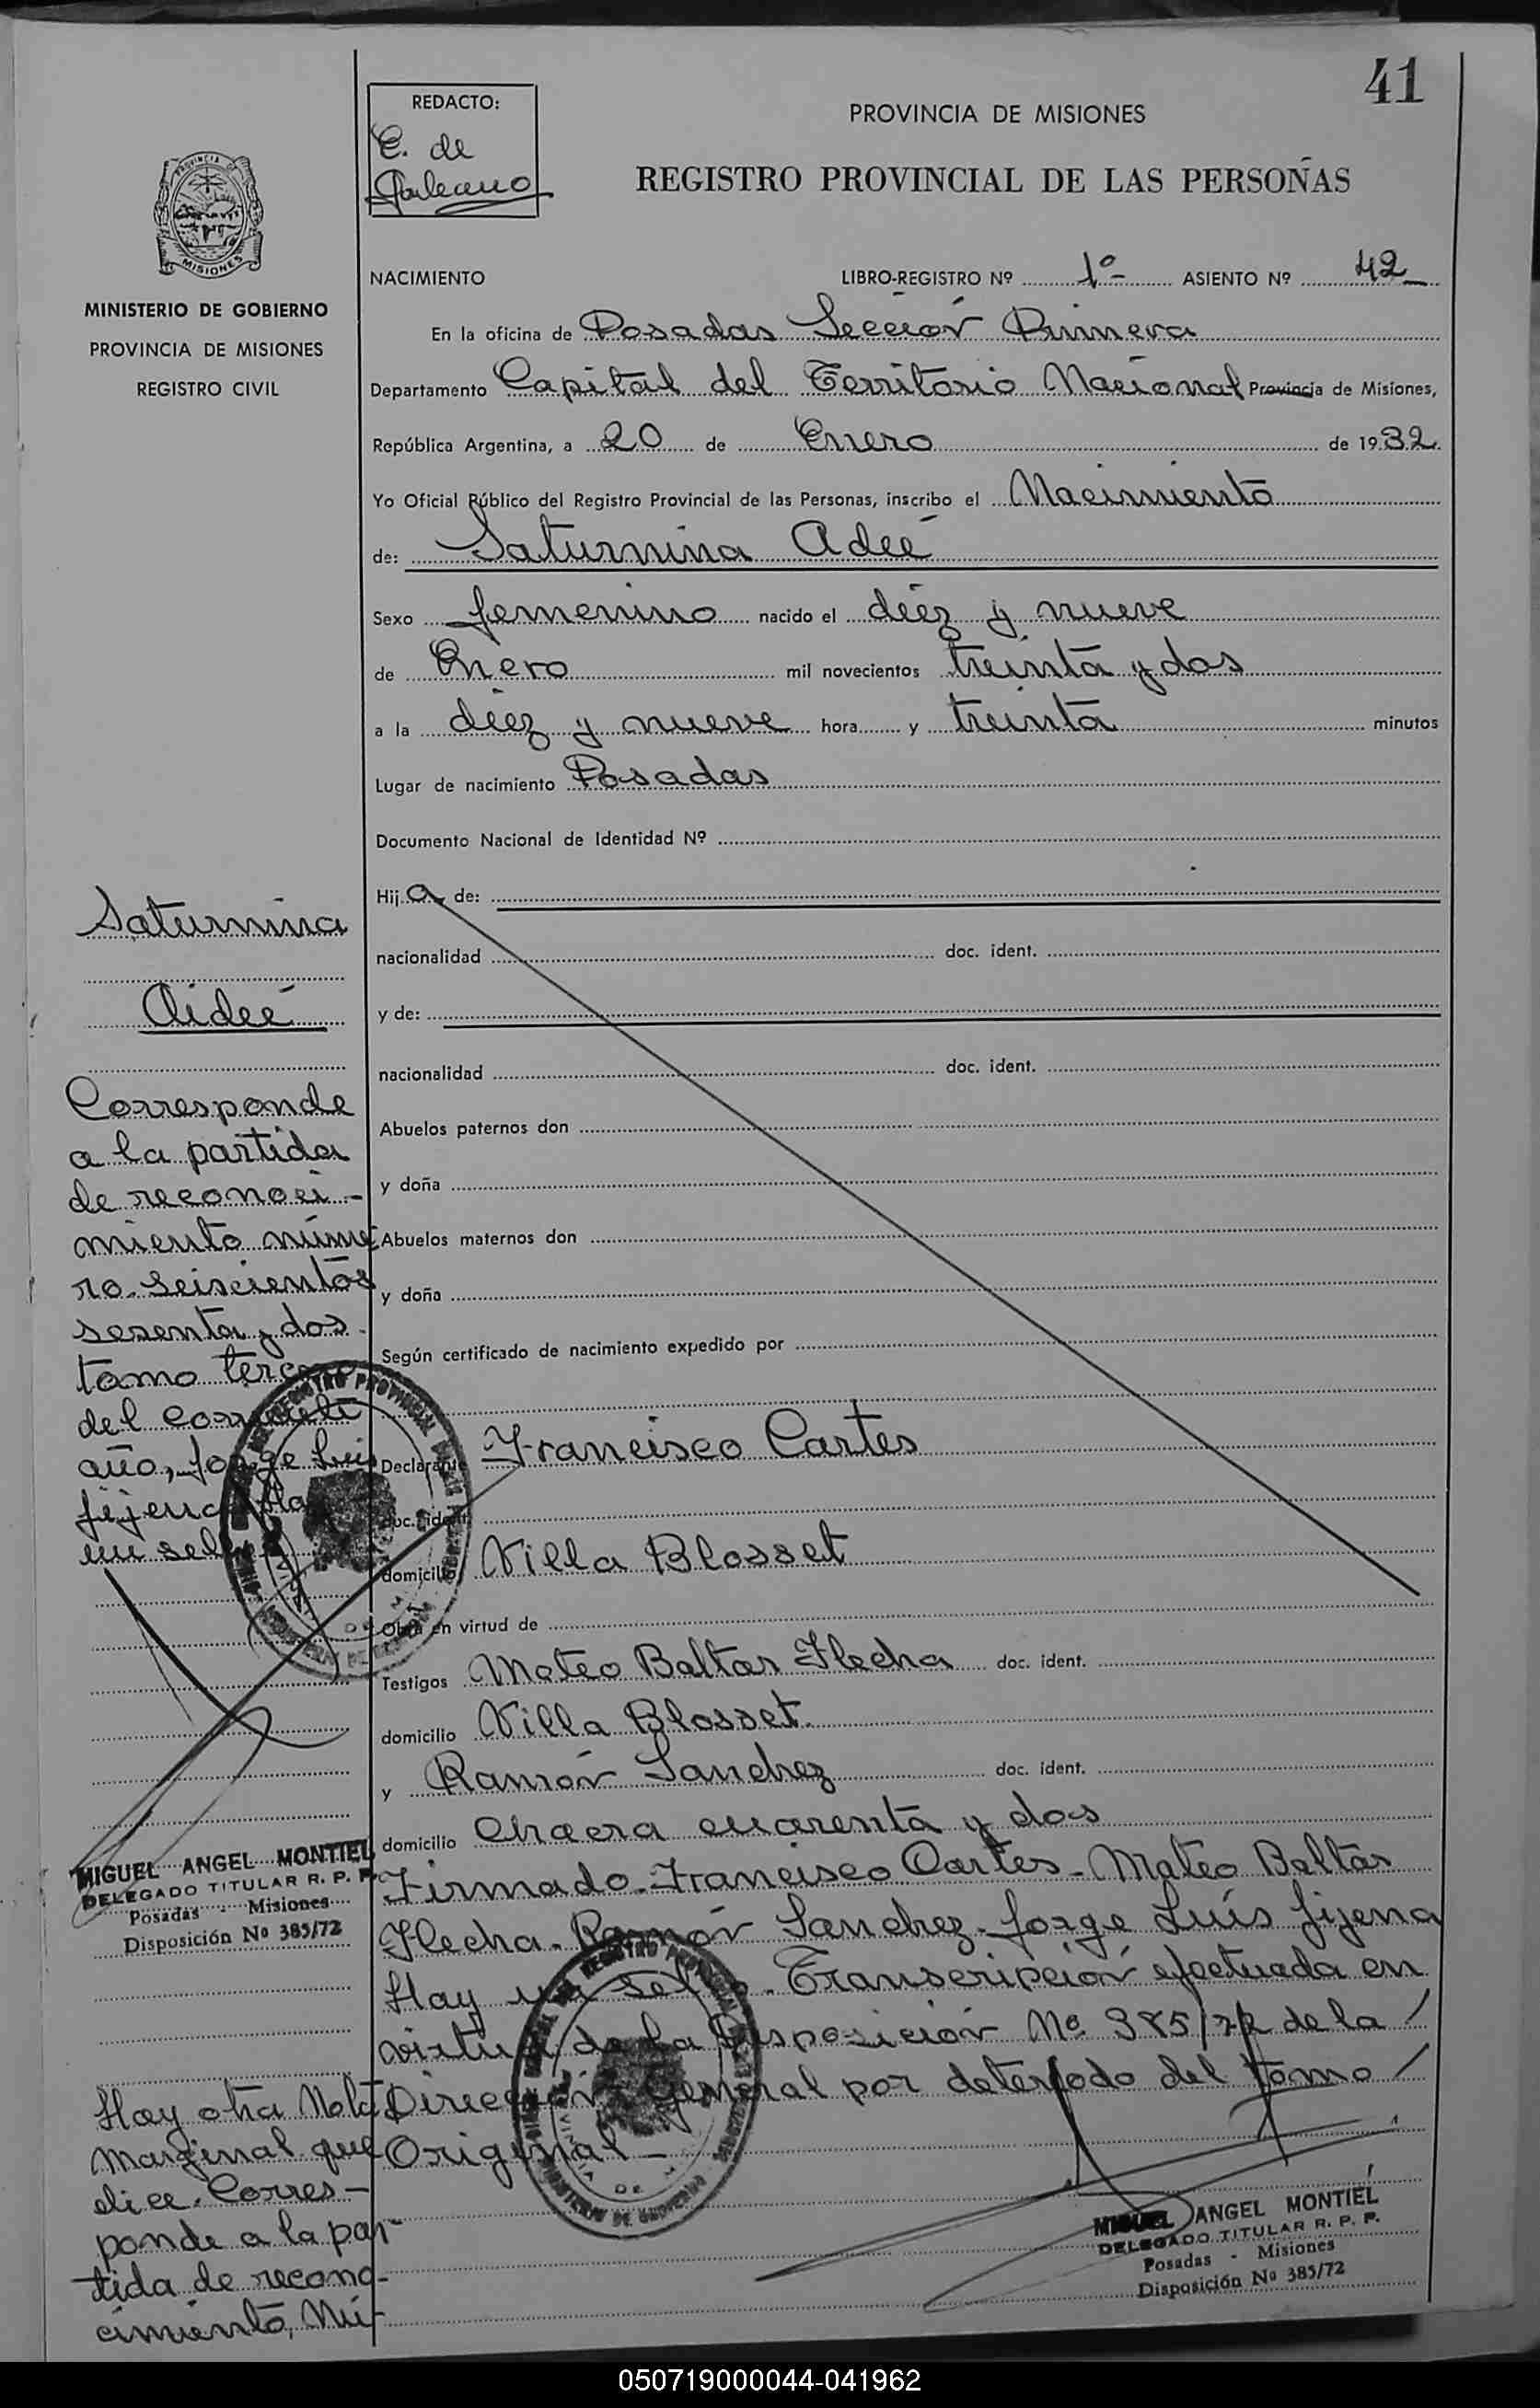 41
REDACTO:
E. de
Galeano
PROVINCIA DE MISIONES
REGISTRO PROVINCIAL DE LAS PERSONAS
PROVINCIA DE
MISIONES
MINISTERIO DE GOBIERNO
PROVINCIA DE MISIONES
REGISTRO CIVIL
NACIMIENTO LIBRO-REGISTRO Nº 1º- ASIENTO Nº 42
En la oficina de Posadas Sección Primera
Departamento Capital del Territorio Nacional Provincia de Misiones,
República Argentina, a 20 de Enero de 1932.
Yo Oficial Público del Registro Provincial de las Personas, inscribo el Nacimiento
de: Saturnina Adeé
Sexo femenino nacido el diéz y nueve
de Enero mil novecientos treinta y dos
a la diéz y nueve hora y treinta minutos
Lugar de nacimiento Posadas
Documento Nacional de Identidad Nº
Hij a de:
nacionalidad doc. ident.
y de:
nacionalidad doc. ident.
Abuelos paternos don
y doña
Abuelos maternos don
y doña
Según certificado de nacimiento expedido por
Declarante Francisco Cartes
doc. ident.
domicilio Villa Blosset
Obra en virtud de
Testigos Mateo Baltar Flecha doc. ident.
domicilio Villa Blosset.
y Ramón Sanchez doc. ident.
domicilio Chacra cuarenta y dos
Firmado. Francisco Cartes - Mateo Baltar
Flecha. Ramón Sanchez. Jorge Luís Jijena
Hay un sello. Transcripción efectuada en
virtud de la Disposición Nº 385/72 de la /
Dirección General por del tomo /
Original -
MIGUEL ANGEL MONTIEL
DELEGADO TITULAR R. P. P.
Posadas - Misiones
Disposición Nº 385/72
Saturnina
Aideé
Corresponde
a la partida
de reconoci-
miento núme
ro seiscientos
sesenta y dos
tomo tercero
del corriente
año, Jorge Luis
Jijena Hay
un sello
MIGUEL ANGEL MONTIEL
DELEGADO TITULAR R. P. P.
Posadas - Misiones
Disposición Nº 385/72
Hay otra Nota
Marginal que
dice. Corres-
ponde a la par-
tida de recono-
cimiento, Nú-
050719000044-041962